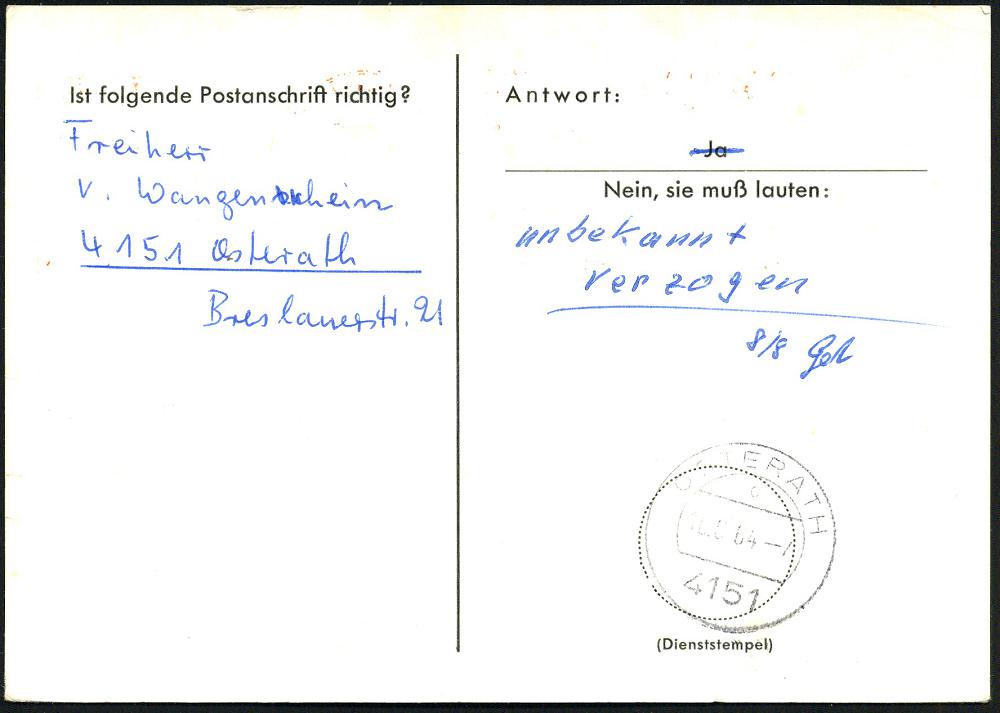 Ist folgende Postanschrift richtig?
Freiherr
v. Wangenheim
4151 Osterath
Breslauerstr. 21
Antwort:
Ja
Nein, sie muß lauten:
unbekannt
verzogen
8/8
OSTERATH
c
64
4151
(Dienststempel)